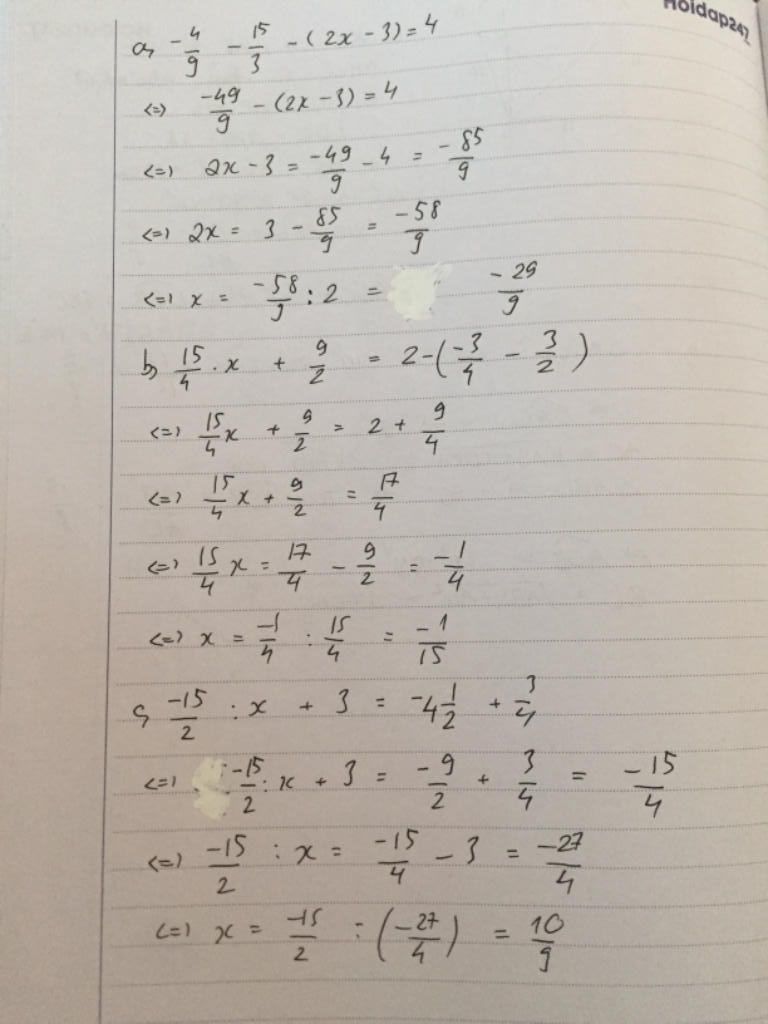 Hoidap247
a, -4/9 - 15/3 - (2x - 3) = 4
<=> -49/9 - (2x - 3) = 4
<=> 2x - 3 = -49/9 - 4 = -85/9
<=> 2x = 3 - 85/9 = -58/9
<=> x = -58/9 : 2 = -29/9
b, 15/4 . x + 9/2 = 2 - (-3/4 - 3/2)
<=> 15/4 x + 9/2 = 2 + 9/4
<=> 15/4 x + 9/2 = 17/4
<=> 15/4 x = 17/4 - 9/2 = -1/4
<=> x = -1/4 : 15/4 = -1/15
c, -15/2 : x + 3 = -4 1/2 + 3/4
<=> -15/2 : x + 3 = -9/2 + 3/4 = -15/4
<=> -15/2 : x = -15/4 - 3 = -27/4
<=> x = -15/2 : (-27/4) = 10/9